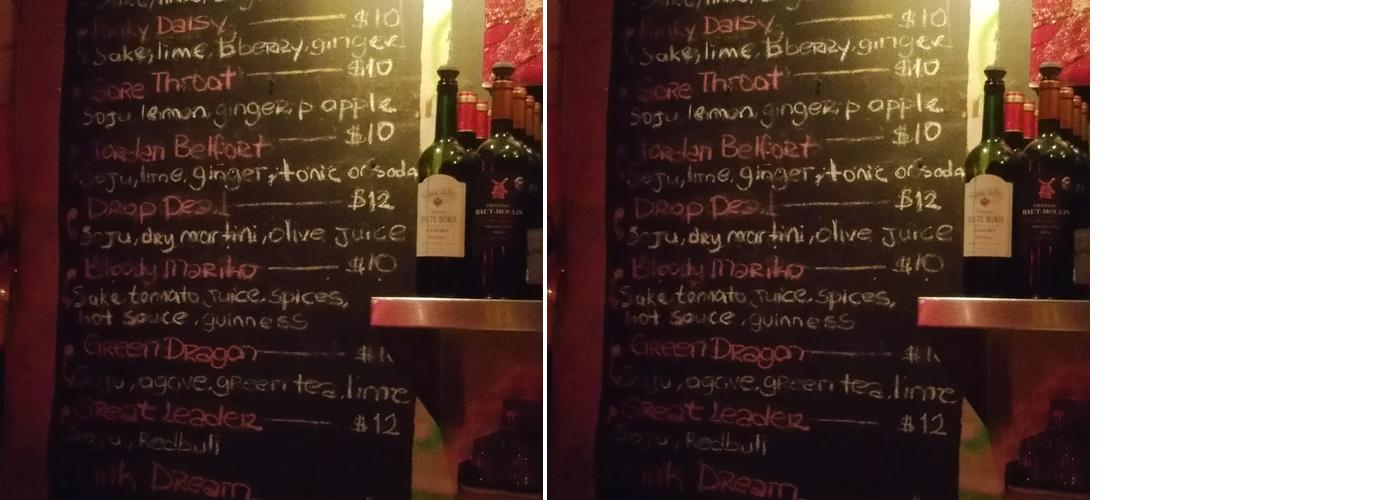 Daisy $10
Sake, lime, bberry, ginger
Sore Throat $10
Soju lemon ginger p apple
Jordan Belfort $10
Soju, lime, ginger, tonic or soda
Drop Dead $12
Soju, dry martini, olive juice
Bloody Mariko $10
Sake tomato juice, spices,
hot sauce, guinness
Green Dragon
Soju, agave, green tea, lime
Great Leader $12
Soju, Redbull
Pink Dream
HAUT-MOULIN
CHÂTEAU
Daisy $10
Sake, lime, bberry, ginger
Sore Throat $10
Soju lemon ginger p apple
Jordan Belfort $10
Soju, lime, ginger, tonic or soda
Drop Dead $12
Soju, dry martini, olive juice
Bloody Mariko $10
Sake tomato juice, spices,
hot sauce, guinness
Green Dragon
Soju, agave, green tea, lime
Great Leader $12
Soju, Redbull
Pink Dream
CHÂTEAU
HAUT-MOULIN